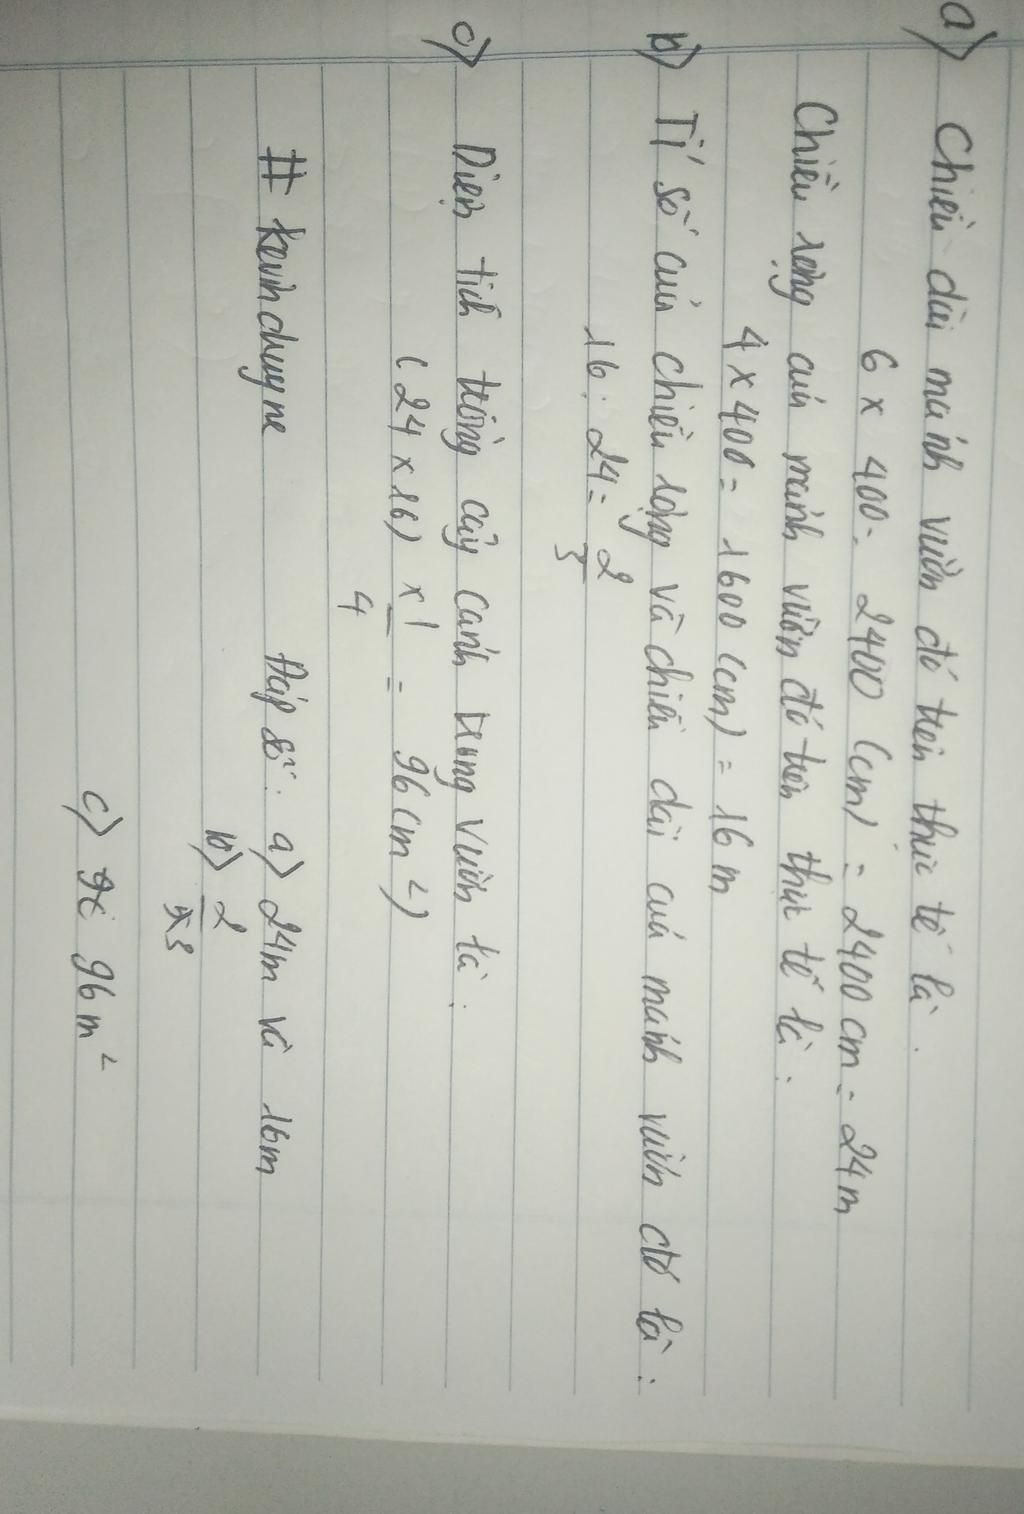 a) Chiều dài mảnh vườn đó trên thực tế là :
6 x 400 = 2400 (cm) = 2400 cm = 24 m
Chiều rộng của mảnh vườn đó trên thực tế là :
4 x 400 = 1600 (cm) = 16 m
b) Tỉ số của chiều rộng và chiều dài của mảnh vườn đó là :
16 : 24 = 2/3
c) Diện tích trồng cây cảnh trong vườn là :
(24 x 16) x 1/4 = 96 (m²)
# kevinchuyne Đáp số : a) 24m và 16m
b) 2/3
c) 96 m²